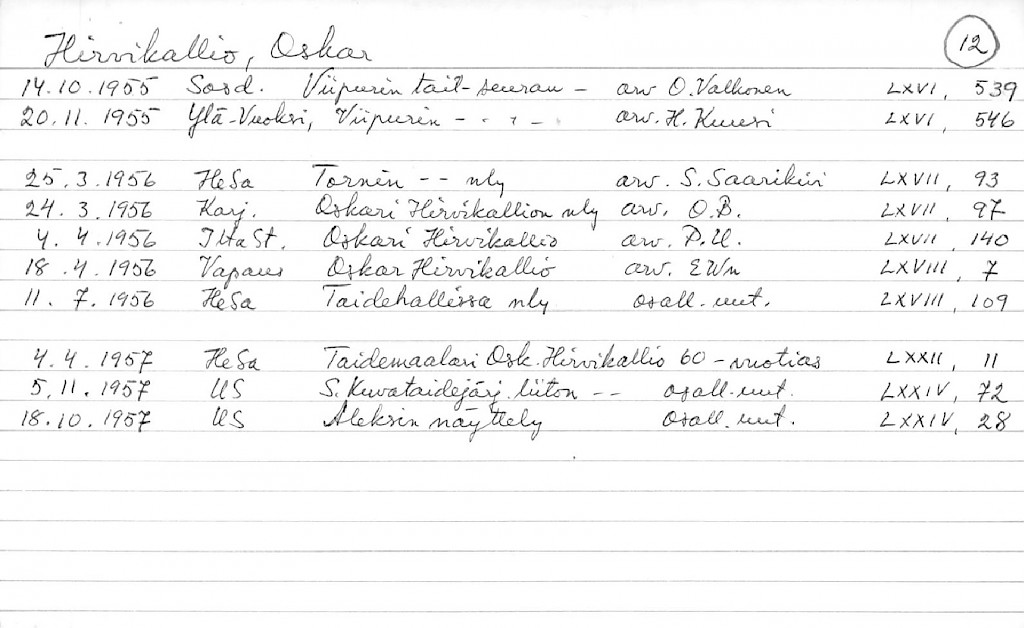 Hirvikallio, Oskar 12
14.10.1955 Sosd. Viipurin tait-seuran - arv O. Valkonen LXVI, 539
20.11.1955 Ylä-Vuoksi, Viipurin - " - arv. H. Kuusi LXVI, 546
25.3.1956 HeSa Tornin -- nly arv. S. Saarikivi LXVII, 93
24.3.1956 Karj. Oskari Hirvikallion nly arv. O.B. LXVII, 97
4.4.1956 IltaSt. Oskari Hirvikallio arv. P.U. LXVII, 140
18.4.1956 Vapaus Oskar Hirvikallio arv. EWn LXVIII, 7
11.7.1956 HeSa Taidehallissa nly osall. uut. LXVIII, 109
4.4.1957 HeSa Taidemaalari Osk. Hirvikallio 60-vuotias LXXII, 11
5.11.1957 US S. Kuvataidejärj. liiton -- osall. uut. LXXIV, 72
18.10.1957 US Aleksin näyttely osall. uut. LXXIV, 28